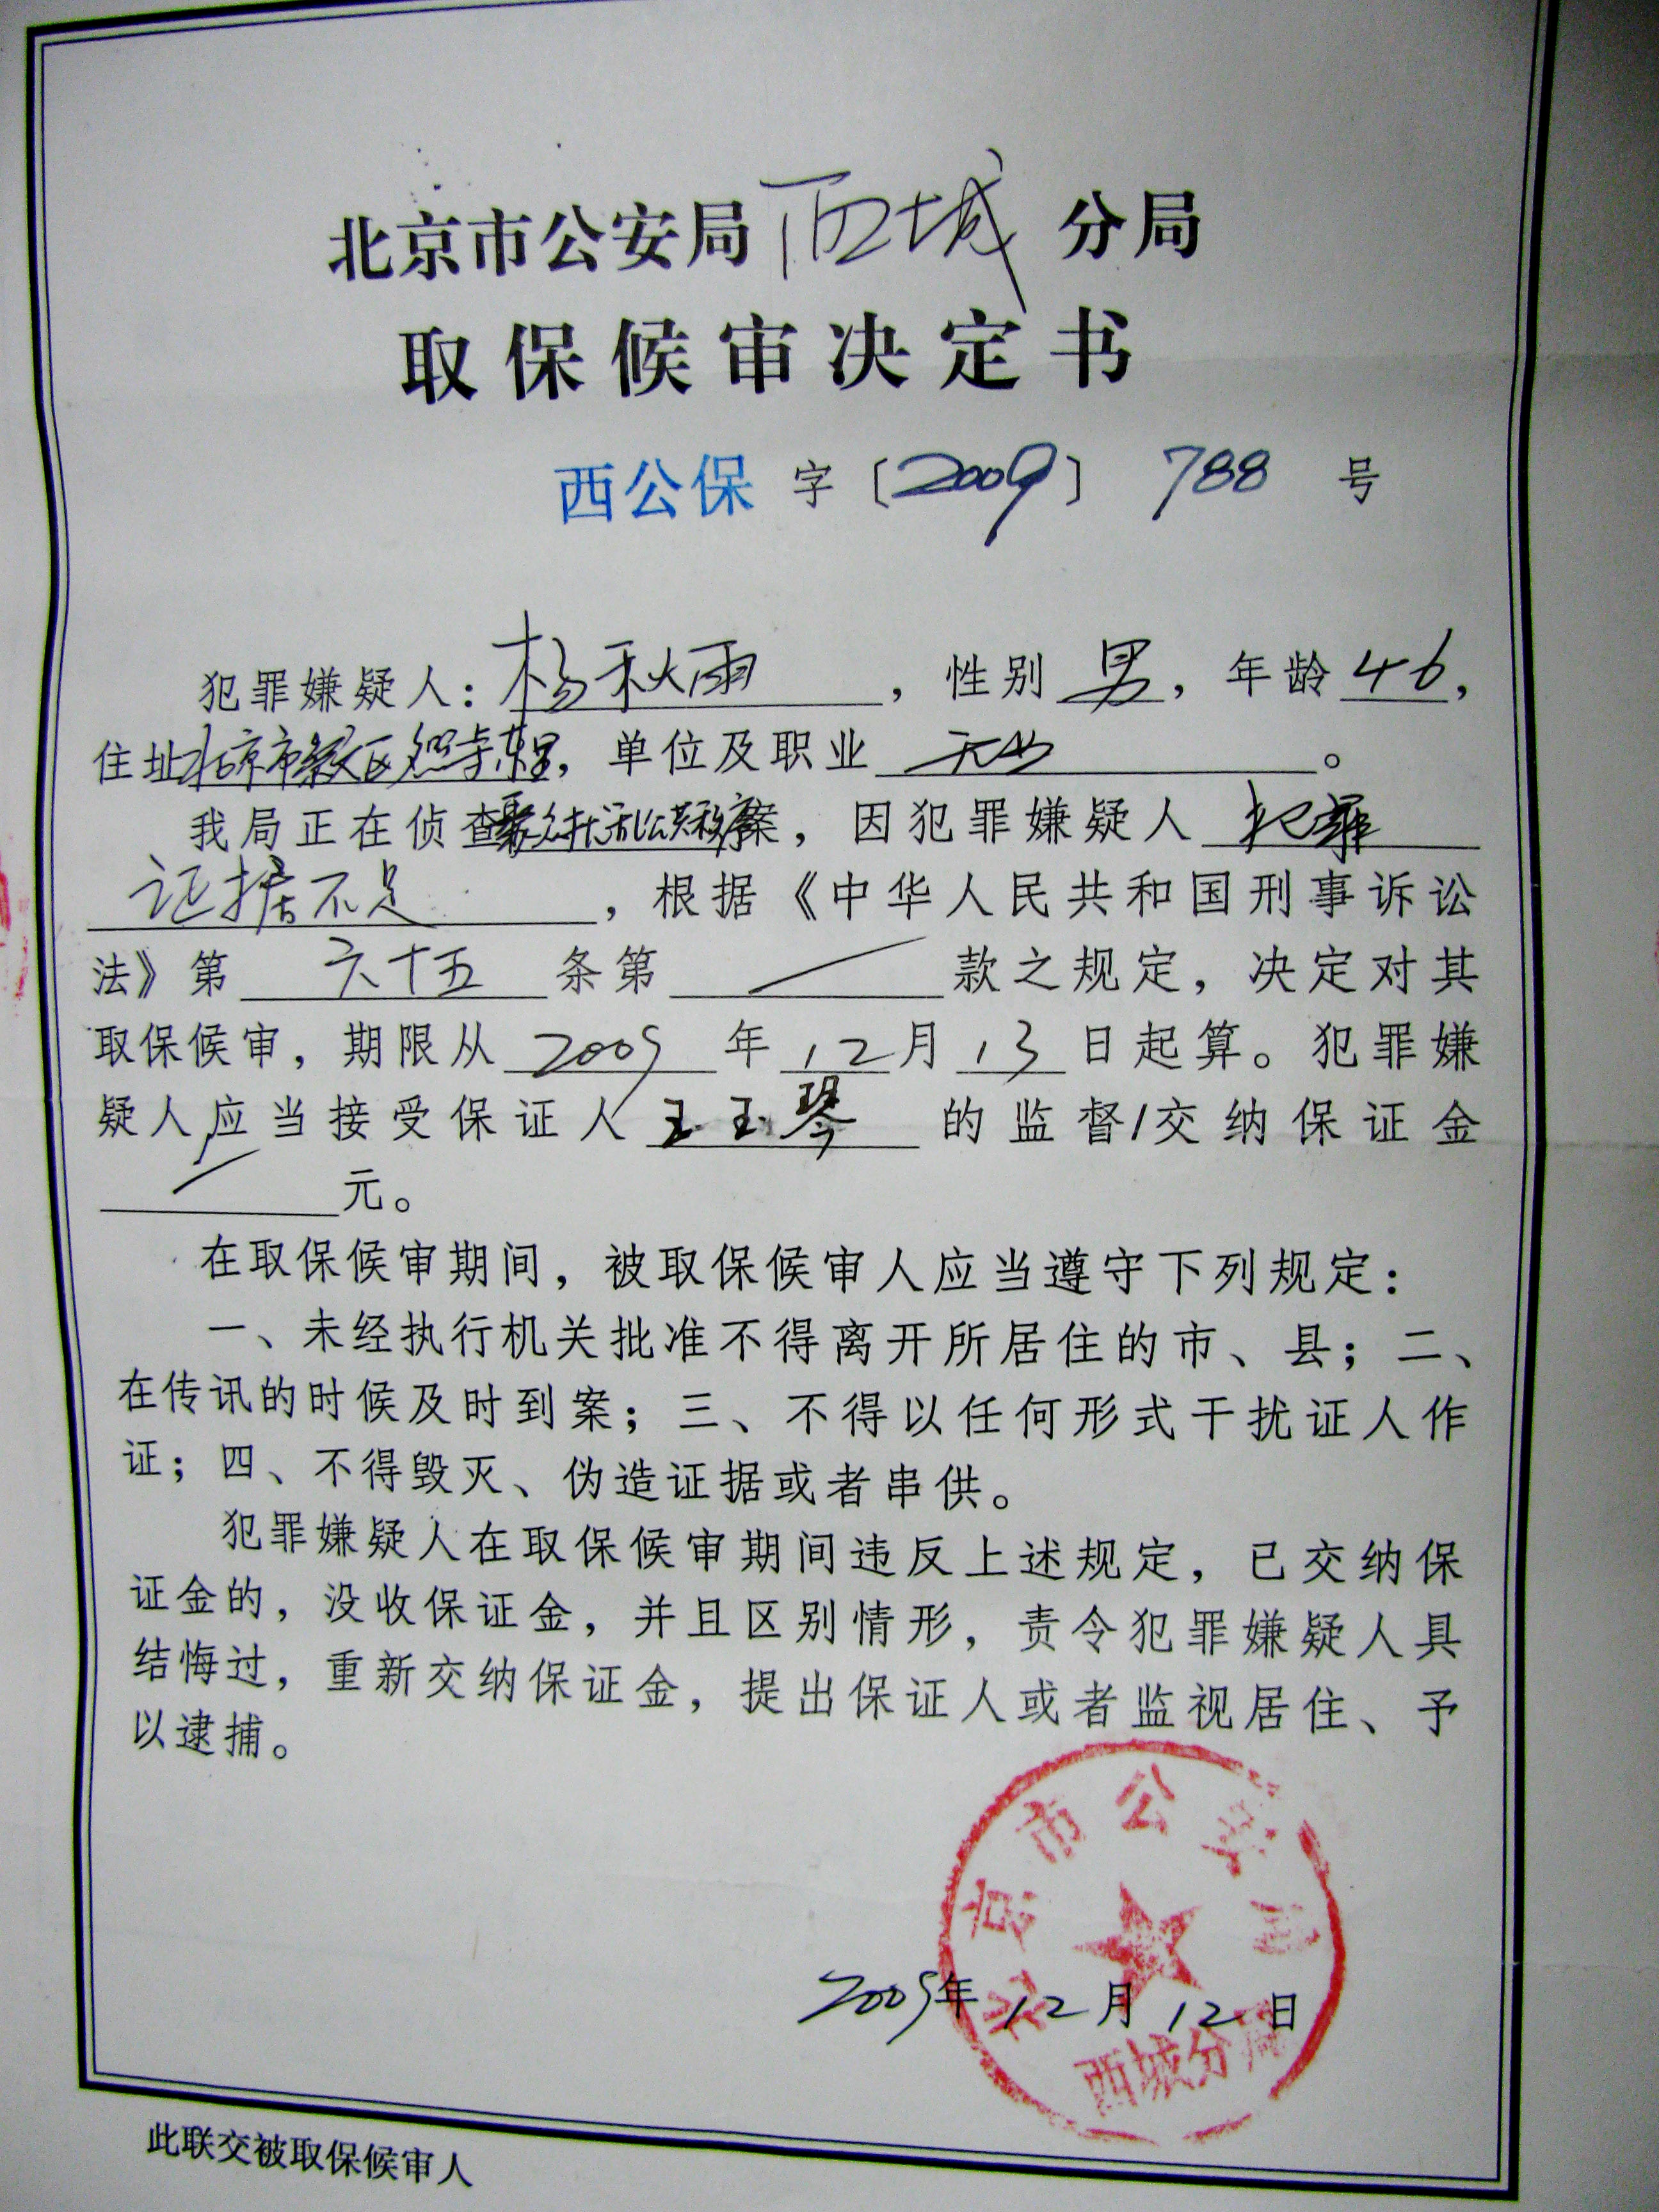 北京市公安局西城分局
取保候审决定书
西公保 字〔2009〕 788 号
犯罪嫌疑人：杨秋雨，性别 男，年龄 46，
住址北京市，单位及职业 无业。
我局正在侦查聚众扰乱公共秩序案，因犯罪嫌疑人 犯罪
证据不足，根据《中华人民共和国刑事诉讼
法》第 六十五 条第 / 款之规定，决定对其
取保候审，期限从 2009 年 12 月 13 日起算。犯罪嫌
疑人应当接受保证人 王玉琴 的监督/交纳保证金
/ 元。
在取保候审期间，被取保候审人应当遵守下列规定：
一、未经执行机关批准不得离开所居住的市、县；二、
在传讯的时候及时到案；三、不得以任何形式干扰证人作
证；四、不得毁灭、伪造证据或者串供。
犯罪嫌疑人在取保候审期间违反上述规定，已交纳保
证金的，没收保证金，并且区别情形，责令犯罪嫌疑人具
结悔过，重新交纳保证金，提出保证人或者监视居住、予
以逮捕。
北京市公安局
2009年 12 月 12 日
西城分局
此联交被取保候审人